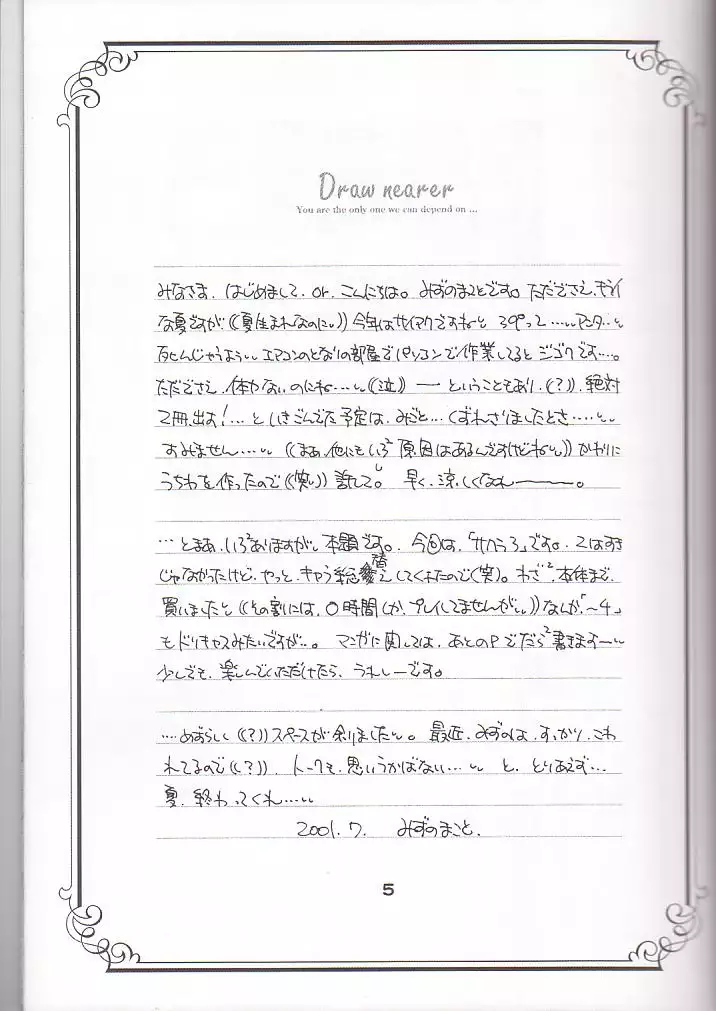 Draw nearer
You are the only one we can depend on ...
みなさま、はじめまして、or、こんにちは。みずのまことです。ただでさえ、キライ
な夏ですが((夏生まれなのに〃))今年はサイアクですねと 39°って…〃アンタ…〃
死んじゃうよう〃エアコンのとなりの部屋でパソコンで作業してるとジゴクです…。
ただでさえ、体力ないのにね…〃((泣)) ― ということもあり、(?)、絶対
2冊、出す!…といきごんでた予定は、みごと…くずれさりましたとさ…〃
すみません…〃((まあ、他にもいろ²原因はあるんですけどね〃))かわりに
うちわを作ったので((笑〃))許して。早く、涼しくなれ―――。
…とまあ、いろ²ありますが、本題です。今回は、「サクラ3」です。2はすき
じゃなかったけど、やっと、キャラ総替えしてくれたので(笑)。わざ²、本体まで、
買いましたと((その割には、0時間しか、プレイしてませんが〃))なんか「~4」
もドリキャスみたいですが…。マンガに関しては、あとのPでだら²書きます―〃
少しでも、楽しんでいただけたら、うれしーです。
…めずらしい((?))スペースが余りました〃。最近、みずのは、すっかり、こわ
れてるので((?))、トークも、思いうかばない…〃 と、とりあえず…
夏、終わってくれ…〃
2001.7. みずのまこと.
5